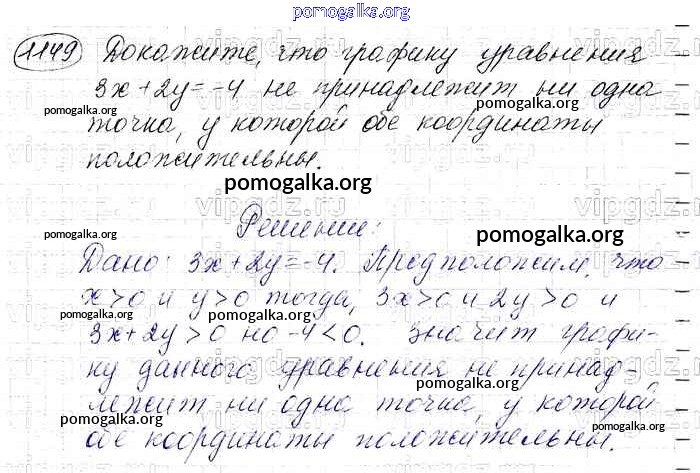 pomogalka.org
1149 Докажите, что графику уравнения
3x+2y=-4 не принадлежит ни одна
pomogalka.org
точка, у которой обе координаты
положительны.
pomogalka.org
Решение:
pomogalka.org
pomogalka.org
Дано: 3x+2y=-4. Предположим, что
x>0 и y>0 тогда, 3x>0 и 2y>0 и
pomogalka.org
pomogalka.org
3x+2y>0 но -4<0. Значит графи-
ку данного уравнения не принад-
pomogalka.org
лежит ни одна точка, у которой
pomogalka.org
pomogalka.org
обе координаты положительны.